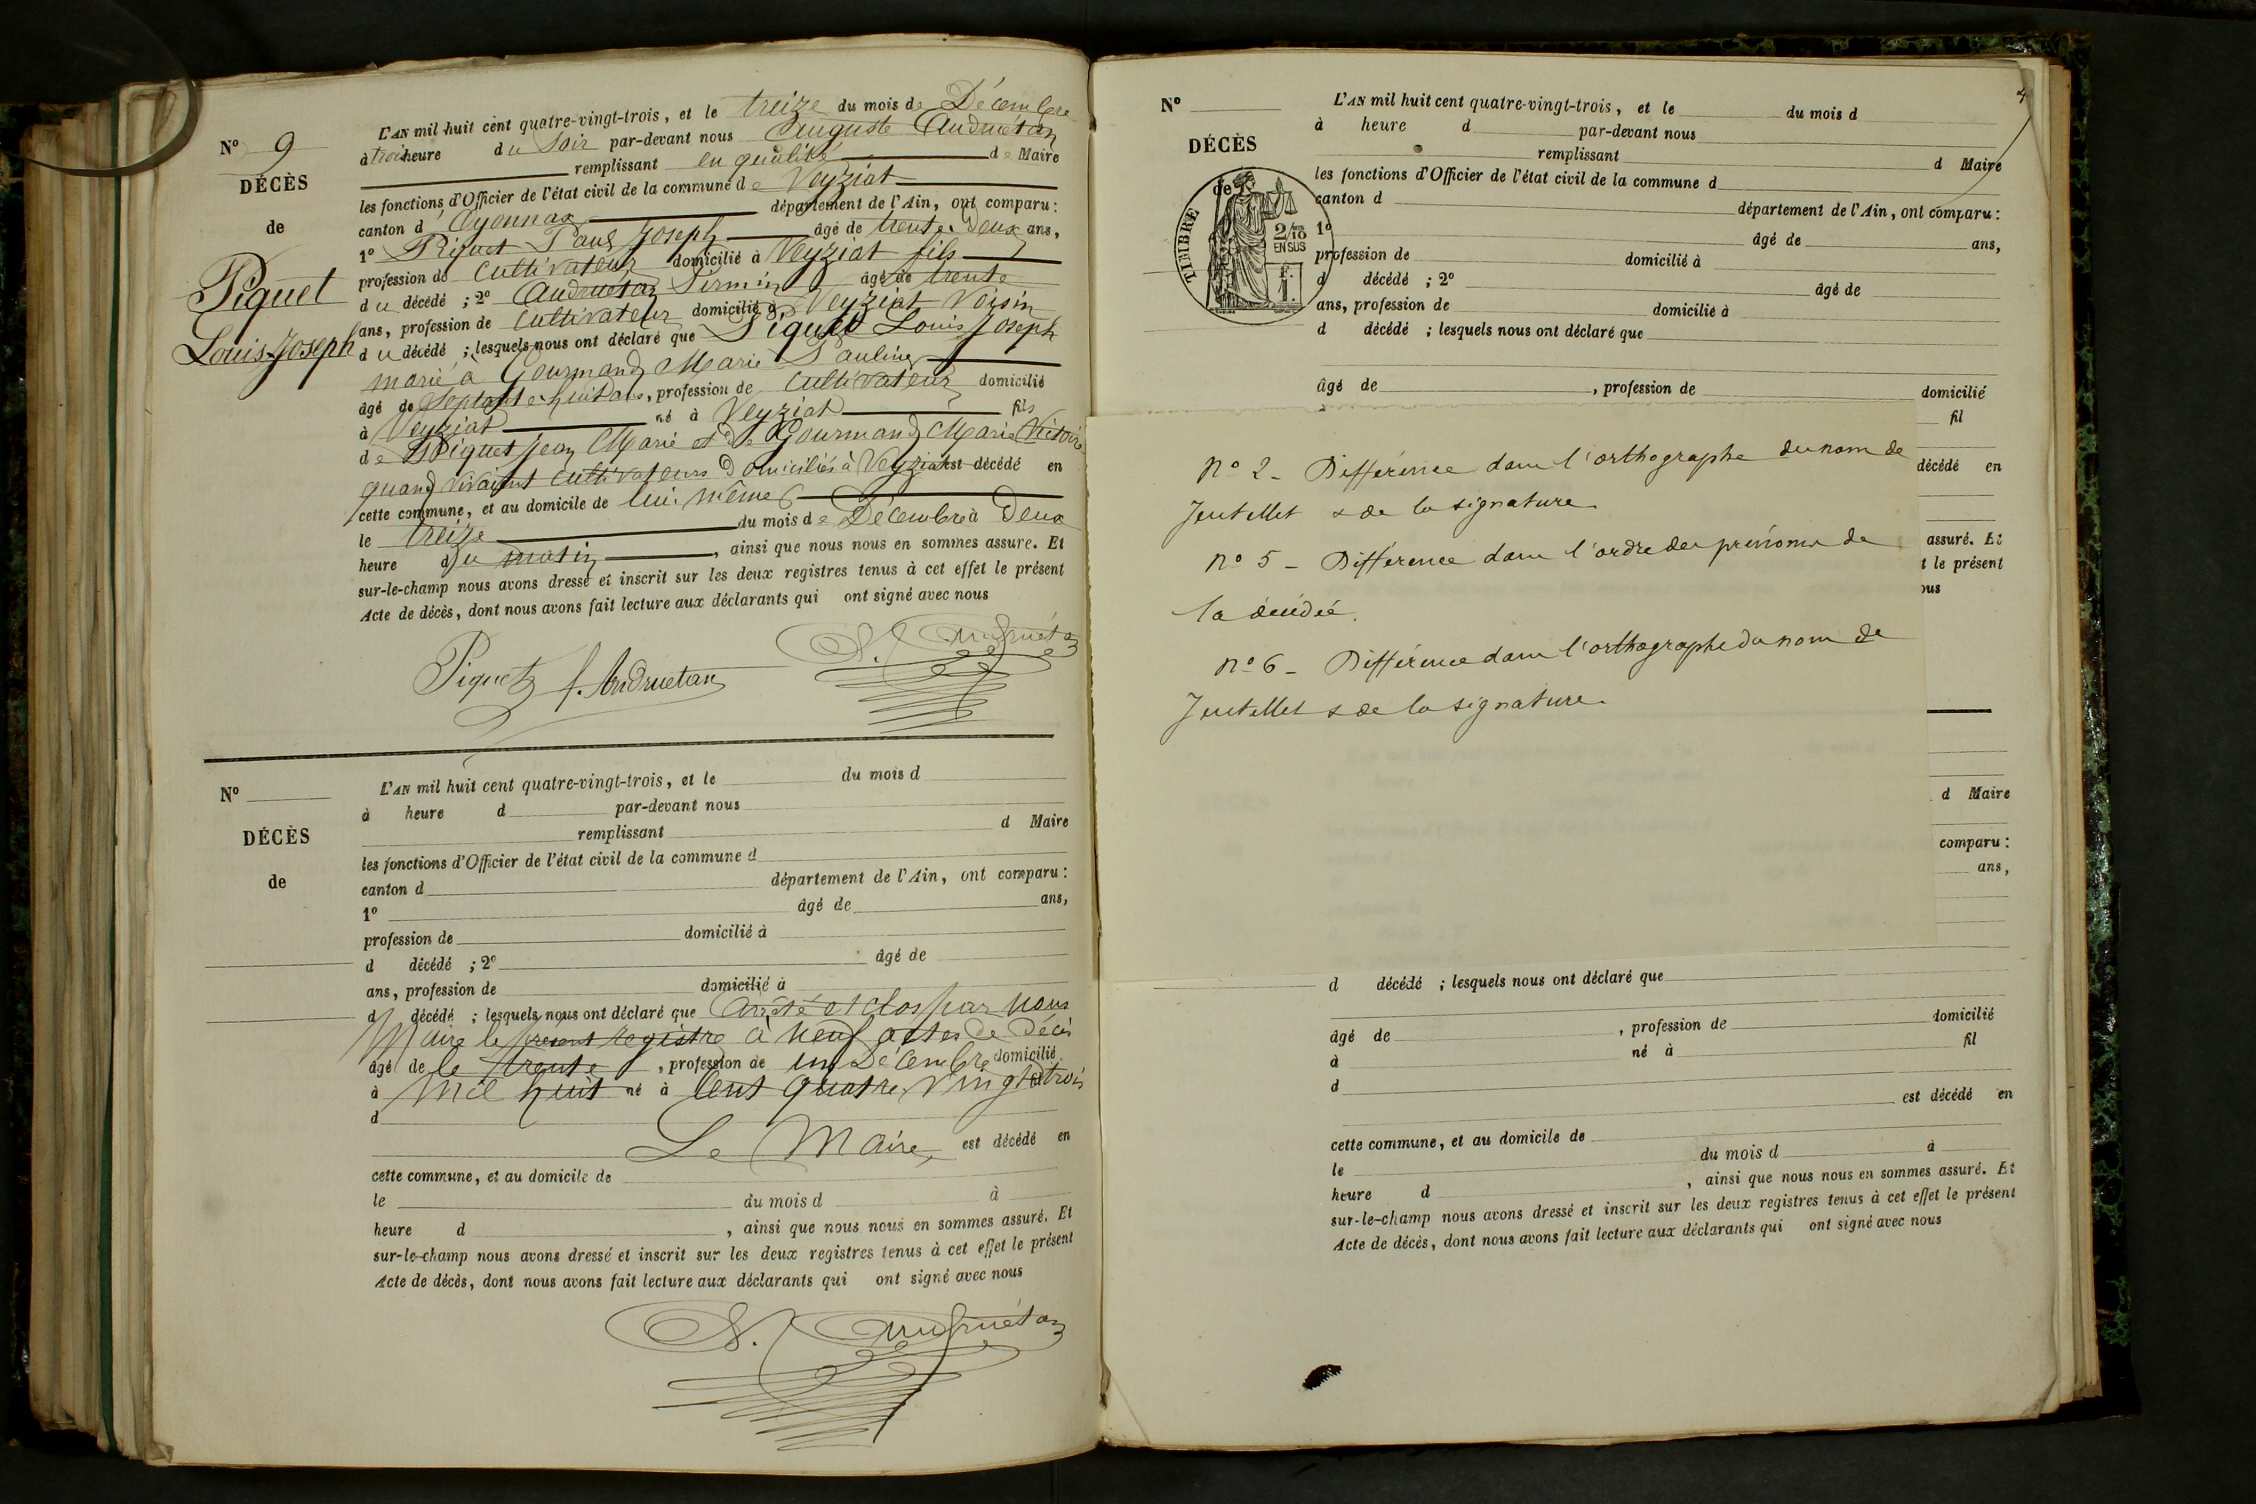 N° 9
DÉCÈS
de
Piquet
Louis-Joseph
L'AN mil huit cent quatre-vingt-trois, et le treize du mois de Décembre
à trois heure du Soir par-devant nous Auguste Andruétan
remplissant en qualité de Maire
les fonctions d'Officier de l'état civil de la commune de Veyziat
canton d'Oyonnax département de l'Ain, ont comparu :
1° Piquet Paul Joseph âgé de trente-Deux ans,
profession de Cultivateur domicilié à Veyziat fils
du décédé ; 2° Andruétan Firmin âgé de trente
ans, profession de Cultivateur domicilié à Veyziat Voisin
du décédé ; lesquels nous ont déclaré que Piquet Louis Joseph
marié à Gourmand Marie Pauline
âgé de Septante-huit ans, profession de Cultivateur domicilié
à Veyziat né à Veyziat fils
de Piquet Jean Marie et de Gourmand Marie Victoire
quand vivaient cultivateurs Domiciliés à Veyziat est décédé en
cette commune, et au domicile de lui-même
le treize du mois de Décembre à Deux
heure du matin, ainsi que nous nous en sommes assuré. Et
sur-le-champ nous avons dressé et inscrit sur les deux registres tenus à cet effet le présent
Acte de décès, dont nous avons fait lecture aux déclarants qui ont signé avec nous
Piquet f. Andruetan A. Andruétan
N°
DÉCÈS
de
L'AN mil huit cent quatre-vingt-trois, et le du mois d
à heure d par-devant nous
remplissant d Maire
les fonctions d'Officier de l'état civil de la commune d
canton d département de l'Ain, ont comparu :
1° âgé de ans,
profession de domicilié à
d décédé ; 2° âgé de
ans, profession de domicilié à
d décédé ; lesquels nous ont déclaré que Arrêté et clos par nous
Maire le présent registre à neuf actes de Décès
âgé de le trente, profession de un Décembre domicilié
à mil huit né à Cent quatre Vingt trois
d
Le Maire, est décédé en
cette commune, et au domicile de
le du mois d à
heure d , ainsi que nous nous en sommes assuré. Et
sur-le-champ nous avons dressé et inscrit sur les deux registres tenus à cet effet le présent
Acte de décès, dont nous avons fait lecture aux déclarants qui ont signé avec nous
A. Andruétan
N°
DÉCÈS
de
TIMBRE
2/10
EN SUS
1 f.
L'AN mil huit cent quatre-vingt-trois, et le du mois d
à heure d par-devant nous
remplissant d Maire
les fonctions d'Officier de l'état civil de la commune d
canton d département de l'Ain, ont comparu :
1° âgé de ans,
profession de domicilié à
d décédé ; 2° âgé de
ans, profession de domicilié à
d décédé ; lesquels nous ont déclaré que
âgé de , profession de domicilié
fil
N° 2 - Différence dans l'orthographe du nom de
décédé en
Jeutellet & de la signature
N° 5 - Différence dans l'ordre des prénoms de
assuré. Et
t le présent
ous
la décédée.
N° 6 - Différence dans l'orthographe du nom de
Jeutellet & de la signature.
d Maire
comparu :
ans,
d décédé ; lesquels nous ont déclaré que
âgé de , profession de domicilié
à né à fil
d
est décédé en
cette commune, et au domicile de
le du mois d à
heure d , ainsi que nous nous en sommes assuré. Et
sur-le-champ nous avons dressé et inscrit sur les deux registres tenus à cet effet le présent
Acte de décès, dont nous avons fait lecture aux déclarants qui ont signé avec nous